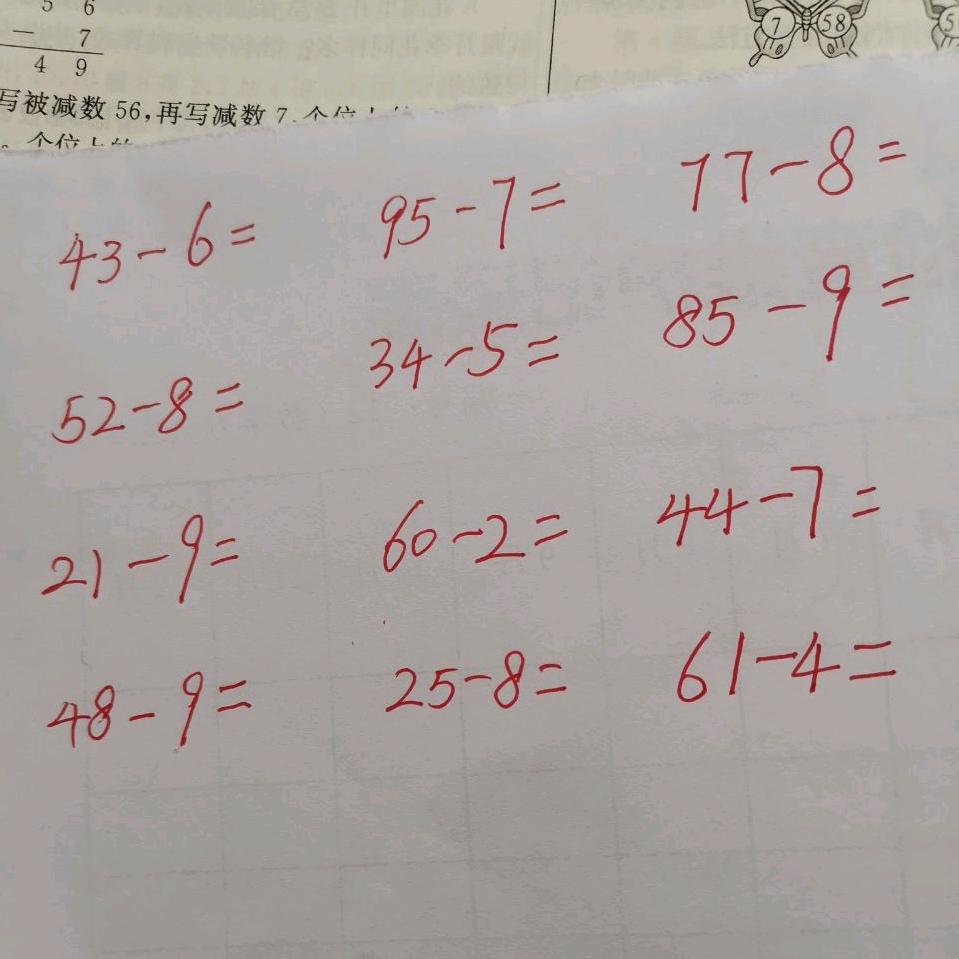 5 6
- 7
4 9
7 58
写被减数 56,再写减数 7.个位上的
。个位上的
43-6= 95-7= 77-8=
52-8= 34-5= 85-9=
21-9= 60-2= 44-7=
48-9= 25-8= 61-4=